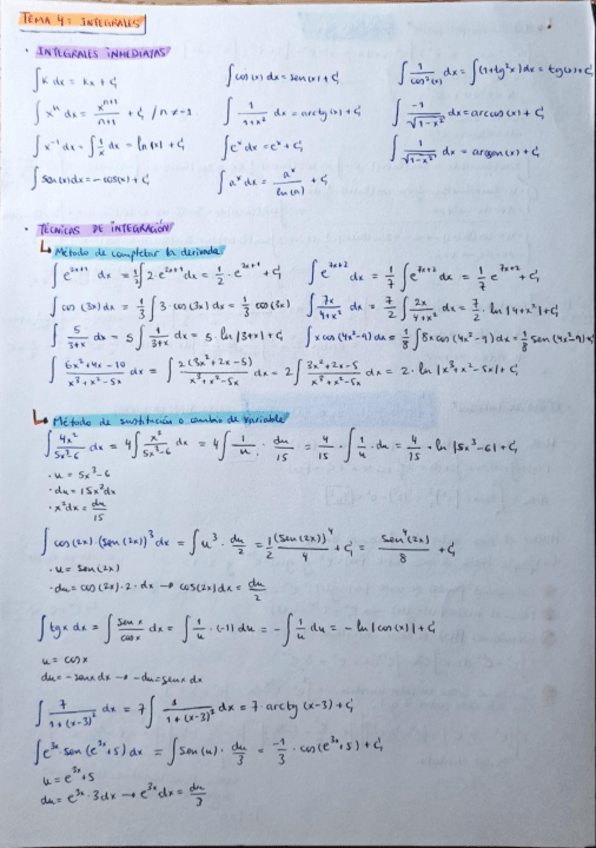 TEMA 4: INTEGRALES
· INTEGRALES INMEDIATAS
∫ K dx = Kx + C
∫ cos(x) dx = sen(x) + C
∫ 1/cos²(x) dx = ∫ (1+tg²x) dx = tg(x) + C
∫ xⁿ dx = xⁿ⁺¹/(n+1) + C / n ≠ -1
∫ 1/(1+x²) dx = arctg(x) + C
∫ -1/√(1-x²) dx = arccos(x) + C
∫ x⁻¹ dx = ∫ 1/x dx = ln|x| + C
∫ eˣ dx = eˣ + C
∫ 1/√(1-x²) dx = arcsen(x) + C
∫ sen(x) dx = -cos(x) + C
∫ aˣ dx = aˣ/ln(a) + C
· TÉCNICAS DE INTEGRACIÓN
↳ Método de completar la derivada
∫ e²ˣ⁺¹ dx = 1/2 ∫ 2·e²ˣ⁺¹ dx = 1/2 · e²ˣ⁺¹ + C
∫ e⁷ˣ⁺² dx = 1/7 ∫ e⁷ˣ⁺² dx = 1/7 e⁷ˣ⁺² + C
∫ cos (3x) dx = 1/3 ∫ 3·cos(3x) dx = 1/3 cos(3x)
∫ 7x/(4+x²) dx = 7/2 ∫ 2x/(4+x²) dx = 7/2 · ln|4+x²| + C
∫ 5/(3+x) dx = 5 ∫ 1/(3+x) dx = 5·ln|3+x| + C
∫ x cos(4x²-9) dx = 1/8 ∫ 8x cos(4x²-9) dx = 1/8 sen(4x²-9) +
∫ (6x²+4x-10)/(x³+x²-5x) dx = ∫ 2(3x²+2x-5)/(x³+x²-5x) dx = 2 ∫ (3x²+2x-5)/(x³+x²-5x) dx = 2·ln|x³+x²-5x| + C
↳ Método de sustitución o cambio de variable
∫ 4x²/(5x³-6) dx = 4 ∫ x²/(5x³-6) dx = 4 ∫ 1/u · du/15 = 4/15 · ∫ 1/u · du = 4/15 · ln|5x³-6| + C
· u = 5x³-6
· du = 15x² dx
· x² dx = du/15
∫ cos(2x)·(sen(2x))³ dx = ∫ u³ · du/2 = 1/2 (sen(2x))⁴/4 + C = sen⁴(2x)/8 + C
· u = sen(2x)
· du = cos(2x)·2·dx → cos(2x) dx = du/2
∫ tgx dx = ∫ sen x/cos x dx = ∫ 1/u · (-1) du = -∫ 1/u du = -ln|cos(x)| + C
u = cos x
du = -senx dx → -du = senx dx
∫ 7/(1+(x-3)²) dx = 7 ∫ 1/(1+(x-3)²) dx = 7·arctg(x-3) + C
∫ e³ˣ·sen(e³ˣ+5) dx = ∫ sen(u)· du/3 = -1/3 · cos(e³ˣ+5) + C
u = e³ˣ+5
du = e³ˣ·3dx → e³ˣ dx = du/3